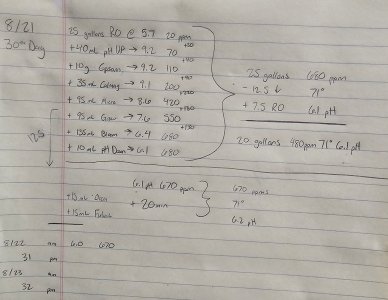 8/21
30th Day
25 gallons RO @ 5.7 20 ppm
+40 mL pH UP → 9.2 70 +50
+10g Epsom → 9.2 110 +40
+ 35 mL Calmag → 9.1 200 +90
+ 95 mL Micro → 8.6 420
+ 95 mL Grow → 7.6 550 +130
+ 155 mL Bloom → 6.4 680 +130
+ 10 mL pH Down → 6.1 680
125
25 gallons 680 ppm
- 12.5 ↓ 71°
+ 7.5 RO 6.1 pH
20 gallons 480ppm 71° 6.1 pH
6.1 pH 670 ppm
+ 20min
+15 mL
+15 mL
670 ppms
71°
6.2 pH
8/22 am 6.0 670
31 pm
8/23 am
32 pm